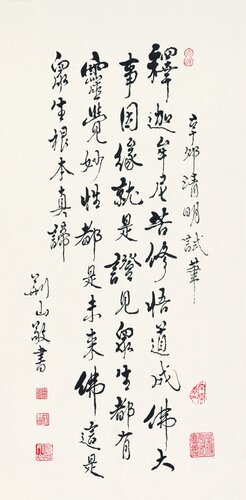 辛卯清明試筆
釋迦牟尼苦修悟道成佛大
事因緣就是證見眾生都有
靈覺妙性都是未来佛這是
眾生根本真諦
敬書